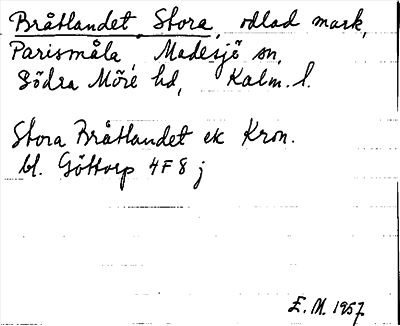 Bråtlandet, Stora, odlad mark,
Parismåla, Madesjö sn,
Södra Möre hd, Kalm. l.
Stora Bråtlandet ek Kron.
bl. Göttorp 4F8j
E. M. 1957.